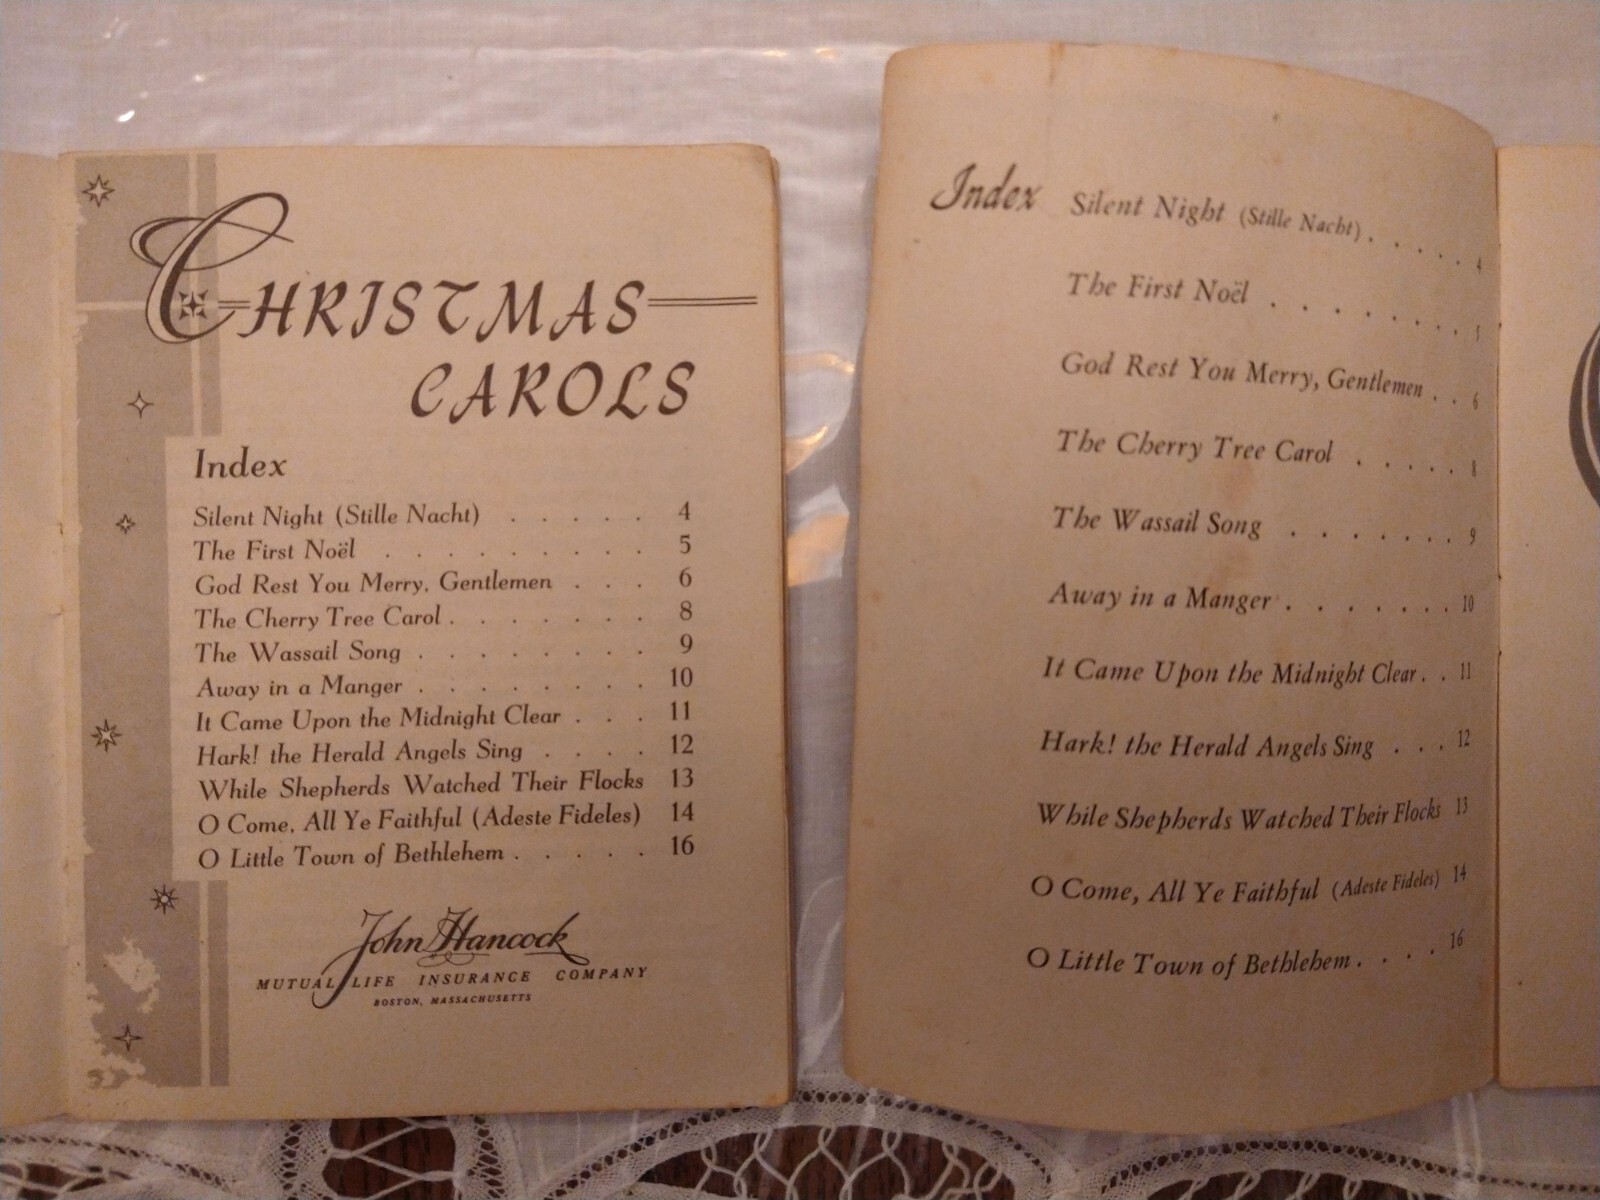 CHRISTMAS
CAROLS
Index
Silent Night (Stille Nacht) . . . . . 4
The First Noël . . . . . . . . . 5
God Rest You Merry, Gentlemen . . . 6
The Cherry Tree Carol . . . . . . . 8
The Wassail Song . . . . . . . . 9
Away in a Manger . . . . . . . . 10
It Came Upon the Midnight Clear . . . 11
Hark! the Herald Angels Sing . . . . 12
While Shepherds Watched Their Flocks 13
O Come, All Ye Faithful (Adeste Fideles) 14
O Little Town of Bethlehem . . . . . 16
John Hancock
MUTUAL LIFE INSURANCE COMPANY
BOSTON, MASSACHUSETTS
Index Silent Night (Stille Nacht) . . . . . 4
The First Noël . . . . . . . . 5
God Rest You Merry, Gentlemen . . 6
The Cherry Tree Carol . . . . . 8
The Wassail Song . . . . . . . 9
Away in a Manger . . . . . . . 10
It Came Upon the Midnight Clear . . 11
Hark! the Herald Angels Sing . . . 12
While Shepherds Watched Their Flocks 13
O Come, All Ye Faithful (Adeste Fideles) 14
O Little Town of Bethlehem . . . . 16